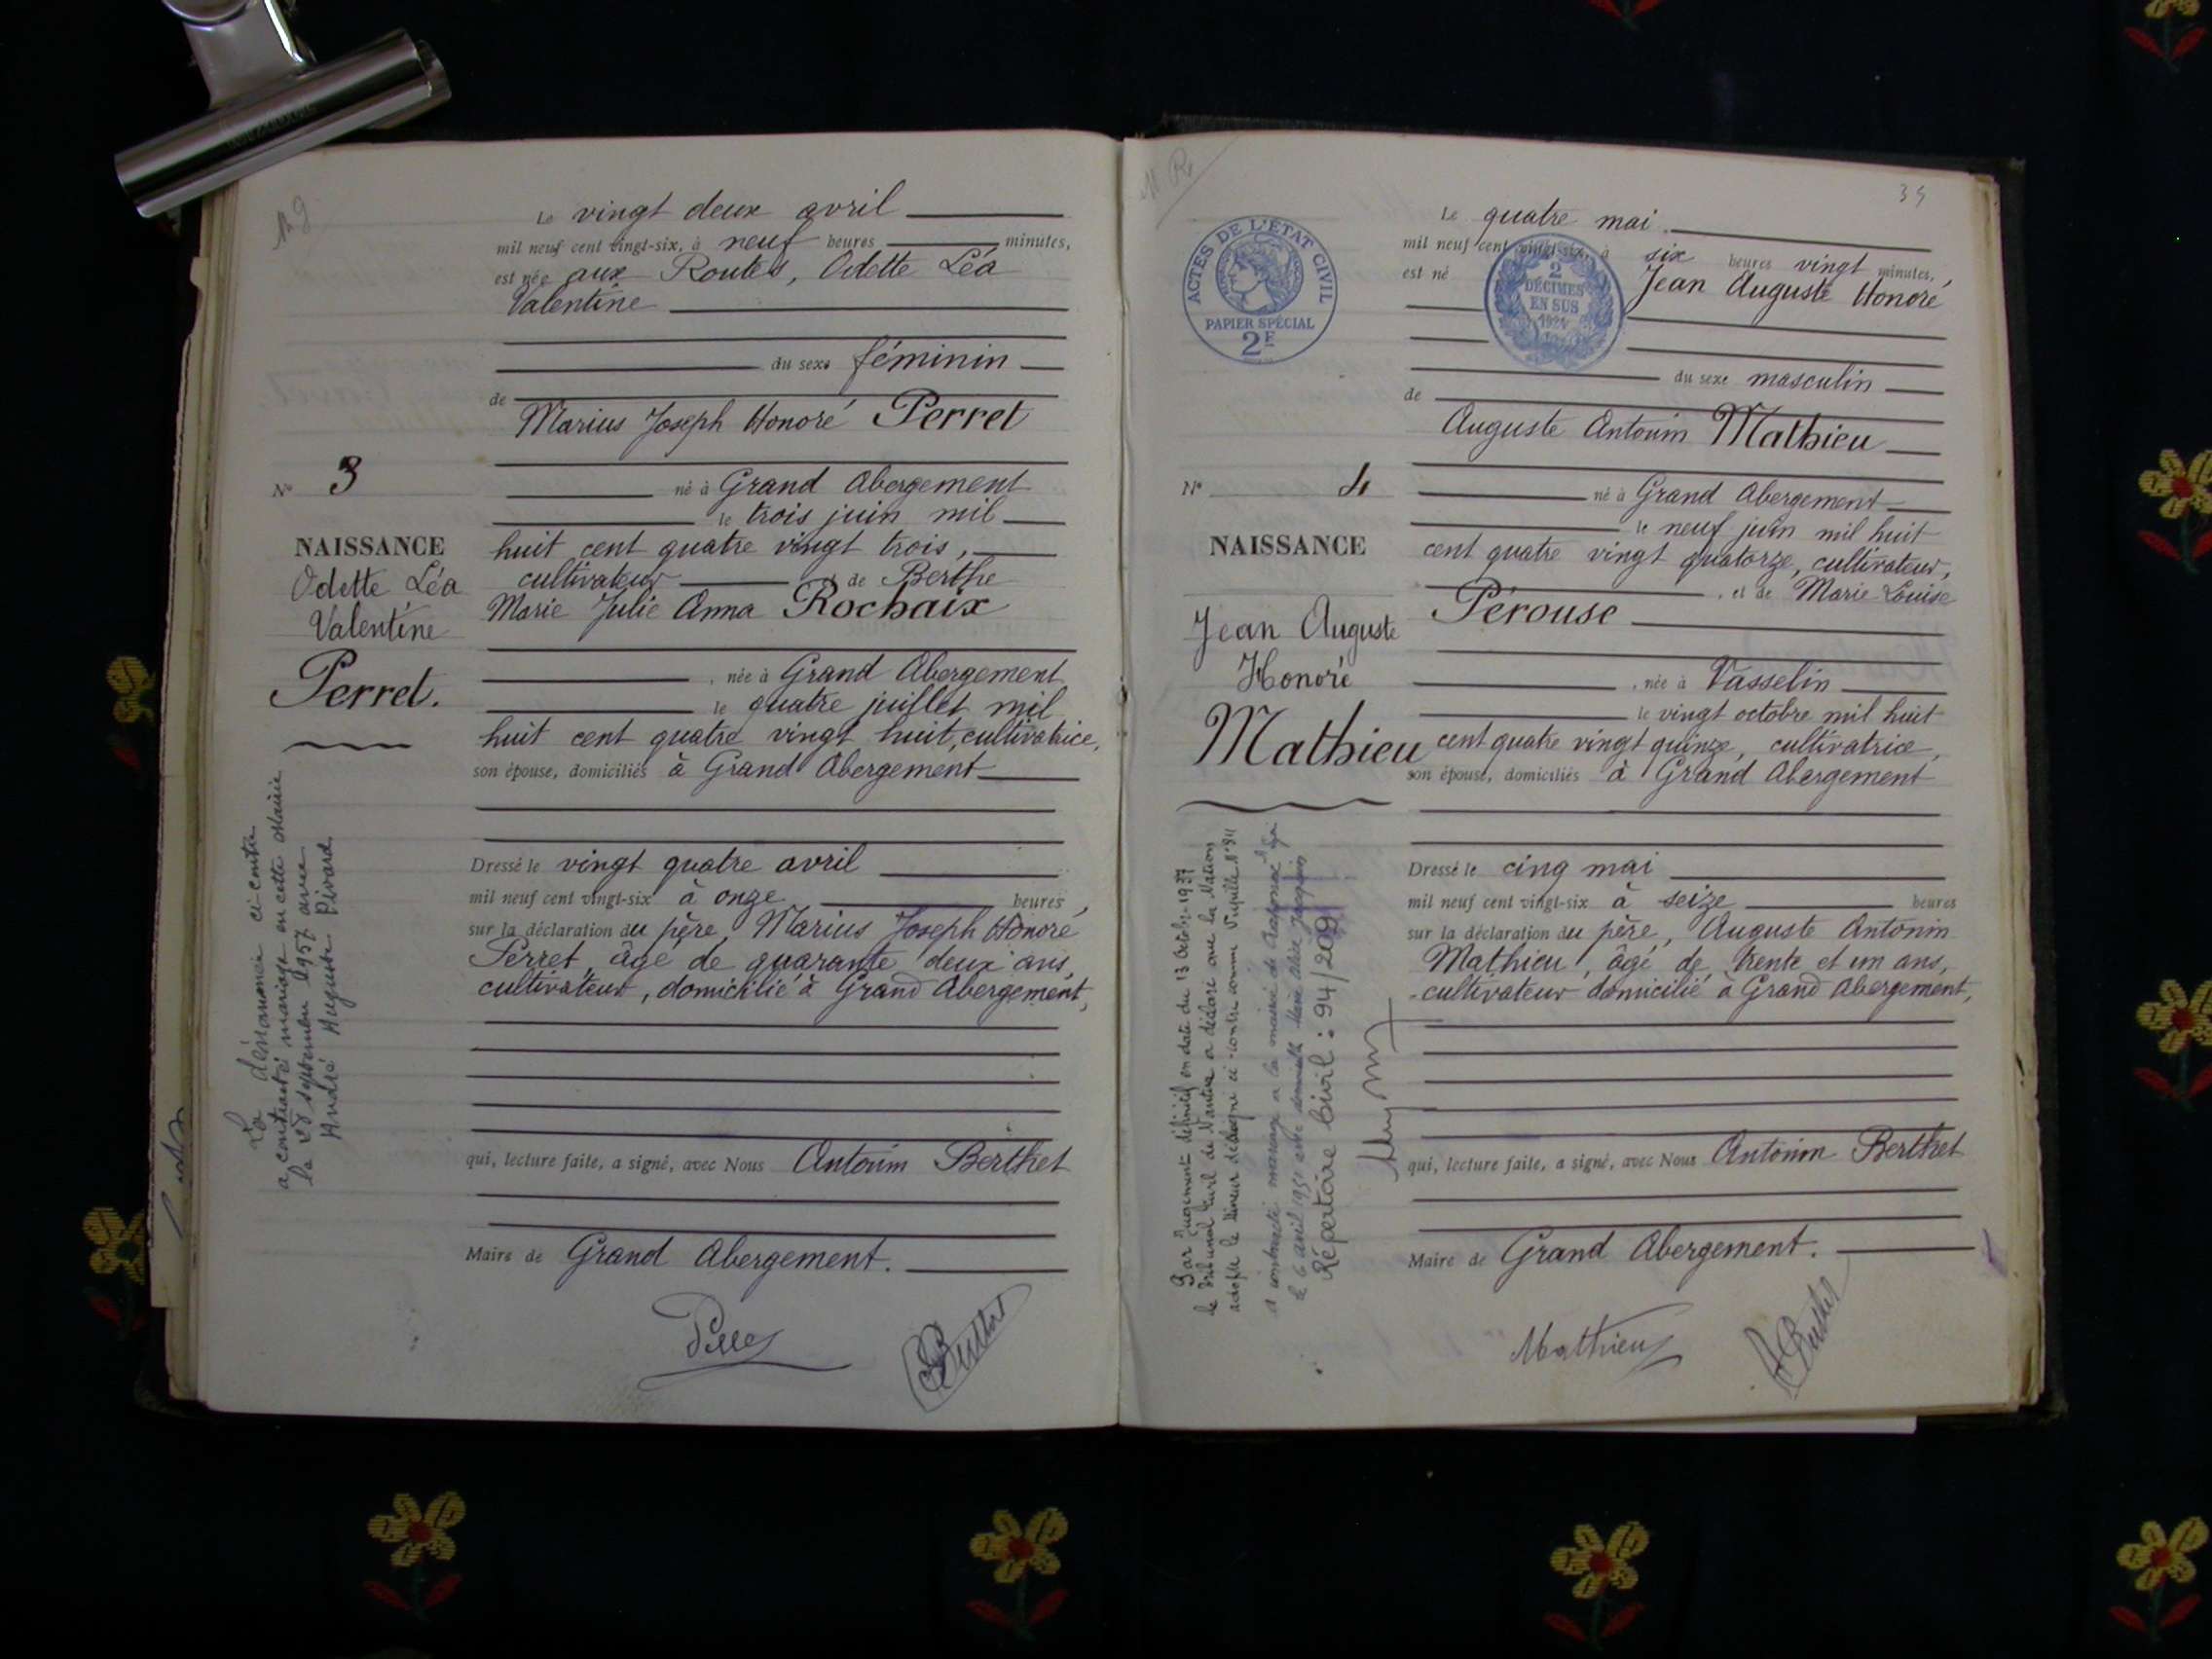 Le vingt deux avril
mil neuf cent vingt-six, à neuf heures minutes,
est née aux Routes, Odette Léa
Valentine
du sexe féminin
de
Marius Joseph Honoré Perret
né à Grand Abergement
le trois juin mil
huit cent quatre vingt trois,
cultivateur et de Berthe
Marie Julie Anna Rochaix
, née à Grand Abergement
le quatre juillet mil
huit cent quatre vingt huit, cultivatrice,
son épouse, domiciliés à Grand Abergement
Dressé le vingt quatre avril
mil neuf cent vingt-six à onze heures,
sur la déclaration du père, Marius Joseph Honoré
Perret, âgé de quarante deux ans,
cultivateur, domicilié à Grand Abergement,
qui, lecture faite, a signé, avec Nous Antonin Berthet
Maire de Grand Abergement.
N° 3
NAISSANCE
Odette Léa
Valentine
Perret.
La dénommée ci-contre
a contracté mariage en cette Mairie
le septembre 1957 avec
André Auguste Pivard.
35
ACTES DE L'ÉTAT CIVIL
PAPIER SPÉCIAL
2F
2
DÉCIMES
EN SUS
1924
Le quatre mai
mil neuf cent vingt-six, à six heures vingt minutes,
est né Jean Auguste Honoré
du sexe masculin
de
Auguste Antonin Mathieu
né à Grand Abergement
le neuf juin mil huit
cent quatre vingt quatorze, cultivateur,
, et de Marie Louise
Pérouse
, née à Vasselin
le vingt octobre mil huit
cent quatre vingt quinze, cultivatrice,
son épouse, domiciliés à Grand Abergement
Dressé le cinq mai
mil neuf cent vingt-six à seize heures
sur la déclaration du père, Auguste Antonin
Mathieu, âgé de trente et un ans,
cultivateur domicilié à Grand Abergement,
qui, lecture faite, a signé, avec Nous Antonin Berthet
Maire de Grand Abergement.
Mathieu
N° 4
NAISSANCE
Jean Auguste
Honoré
Mathieu
Par Jugement définitif en date du 13 Octobre 1937
le Tribunal Civil de Nantua a déclaré que la Nation
adopte le Mineur désigné ci-contre comme Pupille N° 811
a contracté mariage à la mairie de
le 6 avril 1951 avec Marie Alice
Répertoire Civil : 94/209